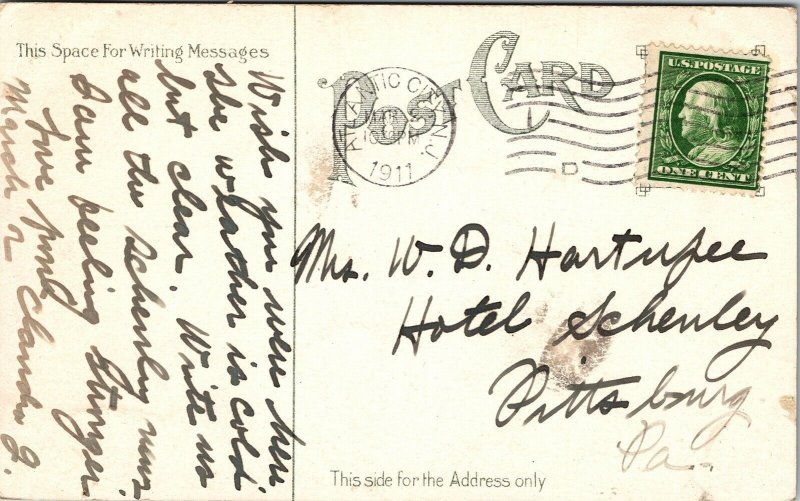 This Space For Writing Messages
POST CARD
ATLANTIC CITY, N.J.
1911
D
U.S. POSTAGE
ONE CENT
Wish you were here
the weather is cold
but clear. Write us
all the Schenley news
I am feeling stronger
love from
March 2 Claudia J.
Mrs. W. D. Hartupee
Hotel Schenley
Pittsburg
Pa.
This side for the Address only